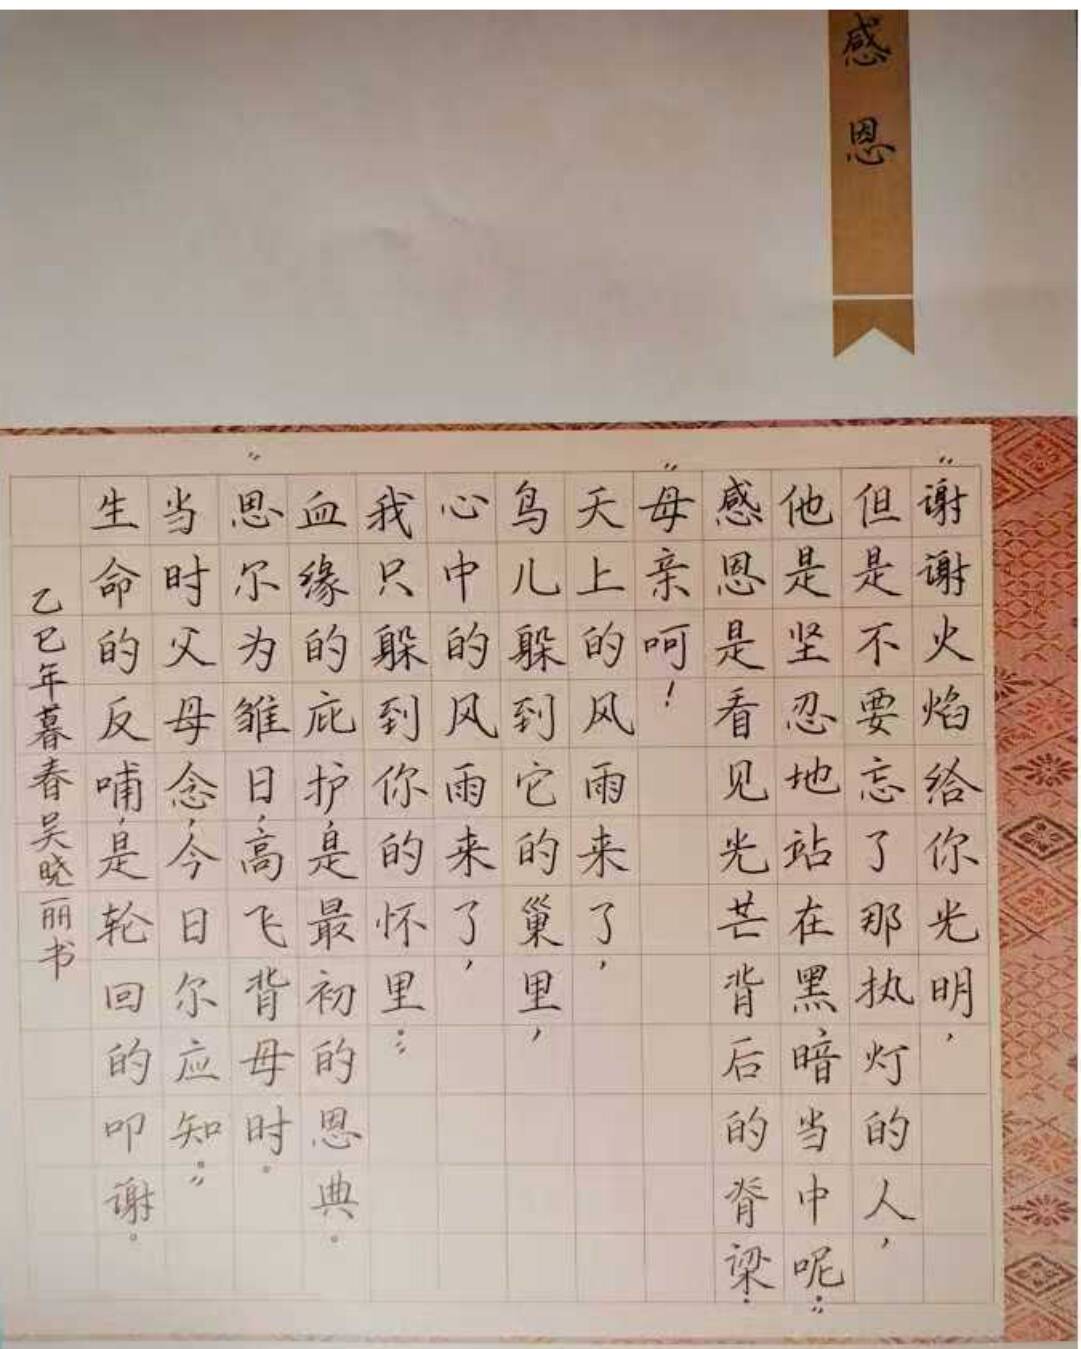 感恩
“谢谢火焰给你光明，
但是不要忘了那执灯的人，
他是坚忍地站在黑暗当中呢：”
感恩是看见光芒背后的脊梁：
“母亲呵！
天上的风雨来了，
鸟儿躲到它的巢里，
心中的风雨来了，
我只躲到你的怀里：”
血缘的庇护，是最初的恩典。
“思尔为雏日，高飞背母时。
当时父母念，今日尔应知。”
生命的反哺，是轮回的叩谢。
乙巳年暮春吴晓丽书